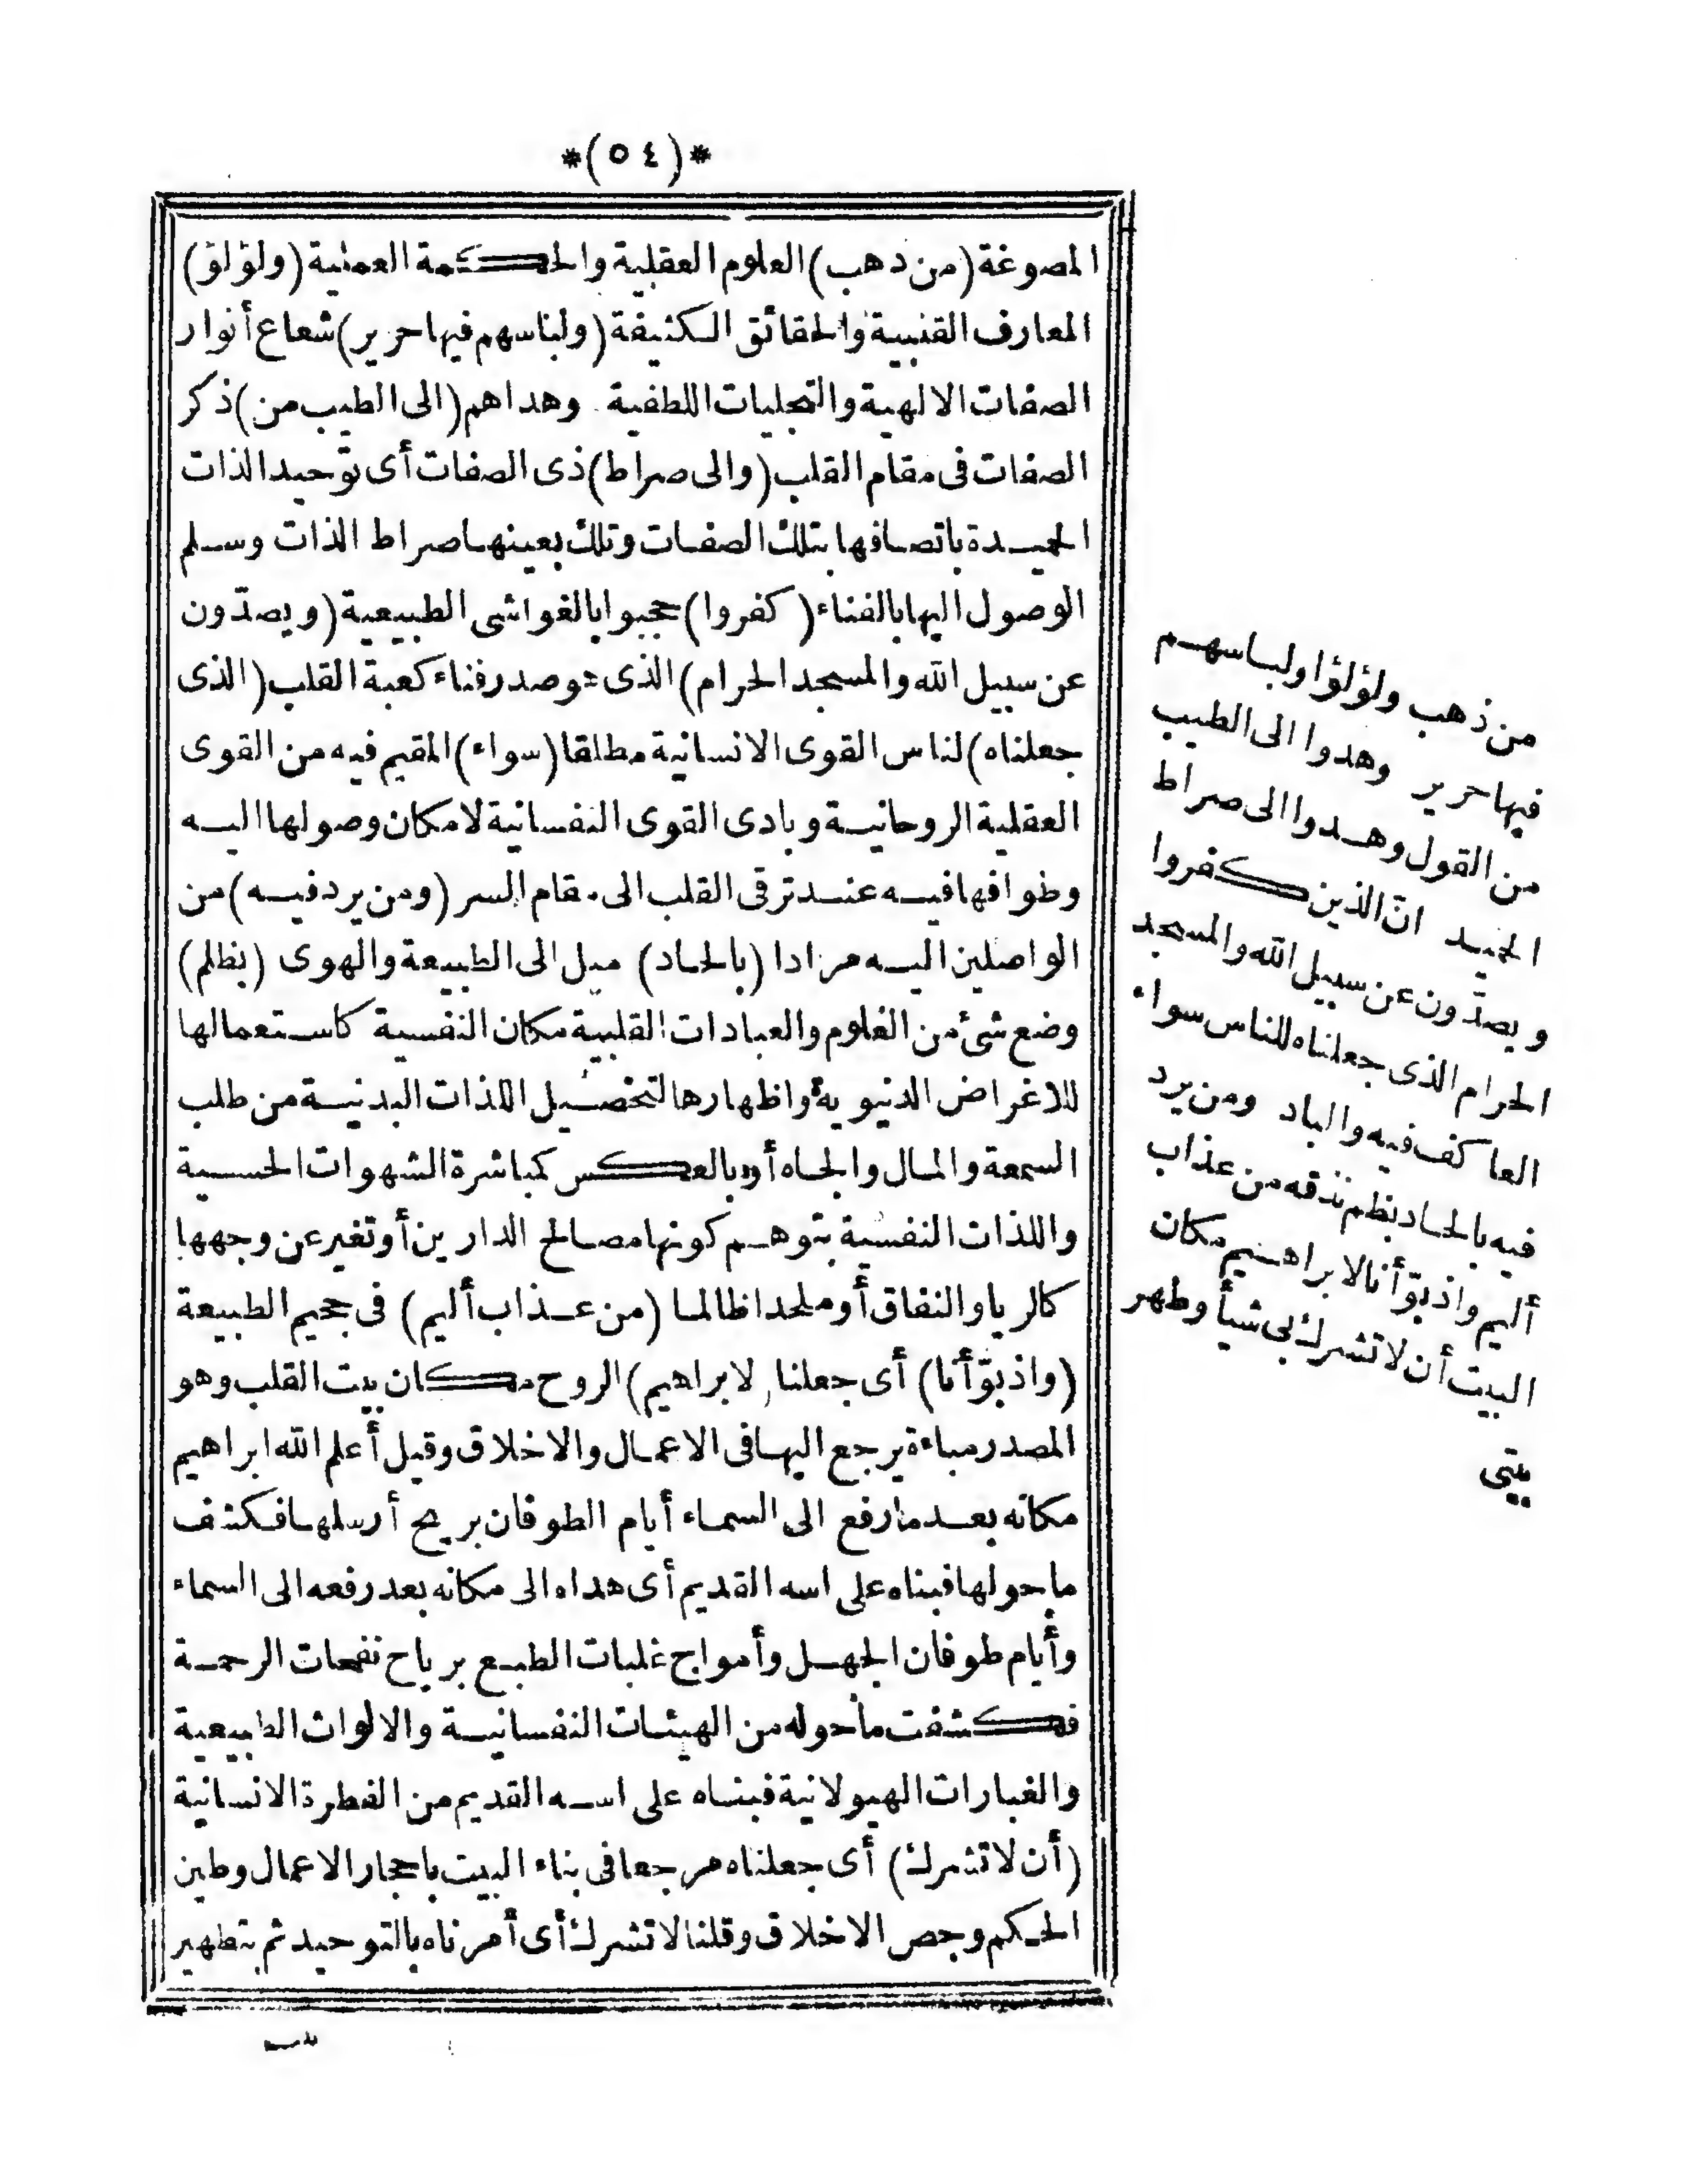 *(٥٤)*
المصوغة (من ذهب) العلوم العقلية والحكمة العملية (ولؤلؤ)
المعارف القلبية والحقائق الكثيفة (ولباسهم فيها حرير) شعاع أنوار
الصفات الالهية والتجليات اللطفية وهداهم (الى الطيب من) ذكر
الصفات فى مقام القلب (والى صراط) ذى الصفات أى توحيد الذات
الحميدة باتصافها بتلك الصفات وتلك بعينها صراط الذات وسلم
الوصول اليها بالفناء (كفروا) حجبوا بالغواشى الطبيعية (ويصدّون
عن سبيل الله والمسجد الحرام) الذى هو صدر فناء كعبة القلب (الذى
جعلناه) لناس القوى الانسانية مطلقا (سواء) المقيم فيه من القوى
العقلية الروحانية وبادى القوى النفسانية لامكان وصولها اليه
وطوافها فيه عند ترقى القلب الى مقام السر (ومن يرد فيه) من
الواصلين اليه مرادا (بالحاد) ميل الى الطبيعة والهوى (بظلم)
وضع شئ من العلوم والعبادات القلبية مكان النفسية كاستعمالها
للاغراض الدنيوية واظهارها لتحصيل اللذات البدنية من طلب
السمعة والمال والجاه أو بالعكس كمباشرة الشهوات الحسية
واللذات النفسية بتوهم كونها مصالح الدارين أو تغير عن وجهها
كالريا والنفاق أو ملحدا ظالما (من عذاب أليم) فى جحيم الطبيعة
(واذ بوّأنا) أى جعلنا لابراهيم) الروح مكان بيت القلب وهو
المصدر مباءة يرجع اليها فى الاعمال والاخلاق وقيل أعلم الله ابراهيم
مكانه بعد ما رفع الى السماء أيام الطوفان بريح أرسلها فكشف
ما حولها فبناه على اسه القديم أى هداه الى مكانه بعد رفعه الى السماء
وأيام طوفان الجهل وأمواج غلبات الطبع برياح نفحات الرحمة
فكشفت ما حوله من الهيئات النفسانية والالواث الطبيعية
والغبارات الهيولانية فبناه على اسه القديم من الفطرة الانسانية
(أن لا تشرك) أى جعلناه مرجعا فى بناء البيت باحجار الاعمال وطين
الحكم وجص الاخلاق وقلنا لا تشرك أى أمرناه بالتوحيد ثم بتطهير
من ذهب ولؤلؤا ولباسهم
فيها حرير وهدوا الى الطيب
من القول وهدوا الى صراط
الحميد انّ الذين كفروا
ويصدّون عن سبيل الله والمسجد
الحرام الذى جعلناه للناس سواء
العاكف فيه والباد ومن يرد
فيه بالحاد بظلم نذقه من عذاب
أليم واذ بوّأنا لابراهيم مكان
البيت أن لا تشرك بى شيأ وطهر
بيتى